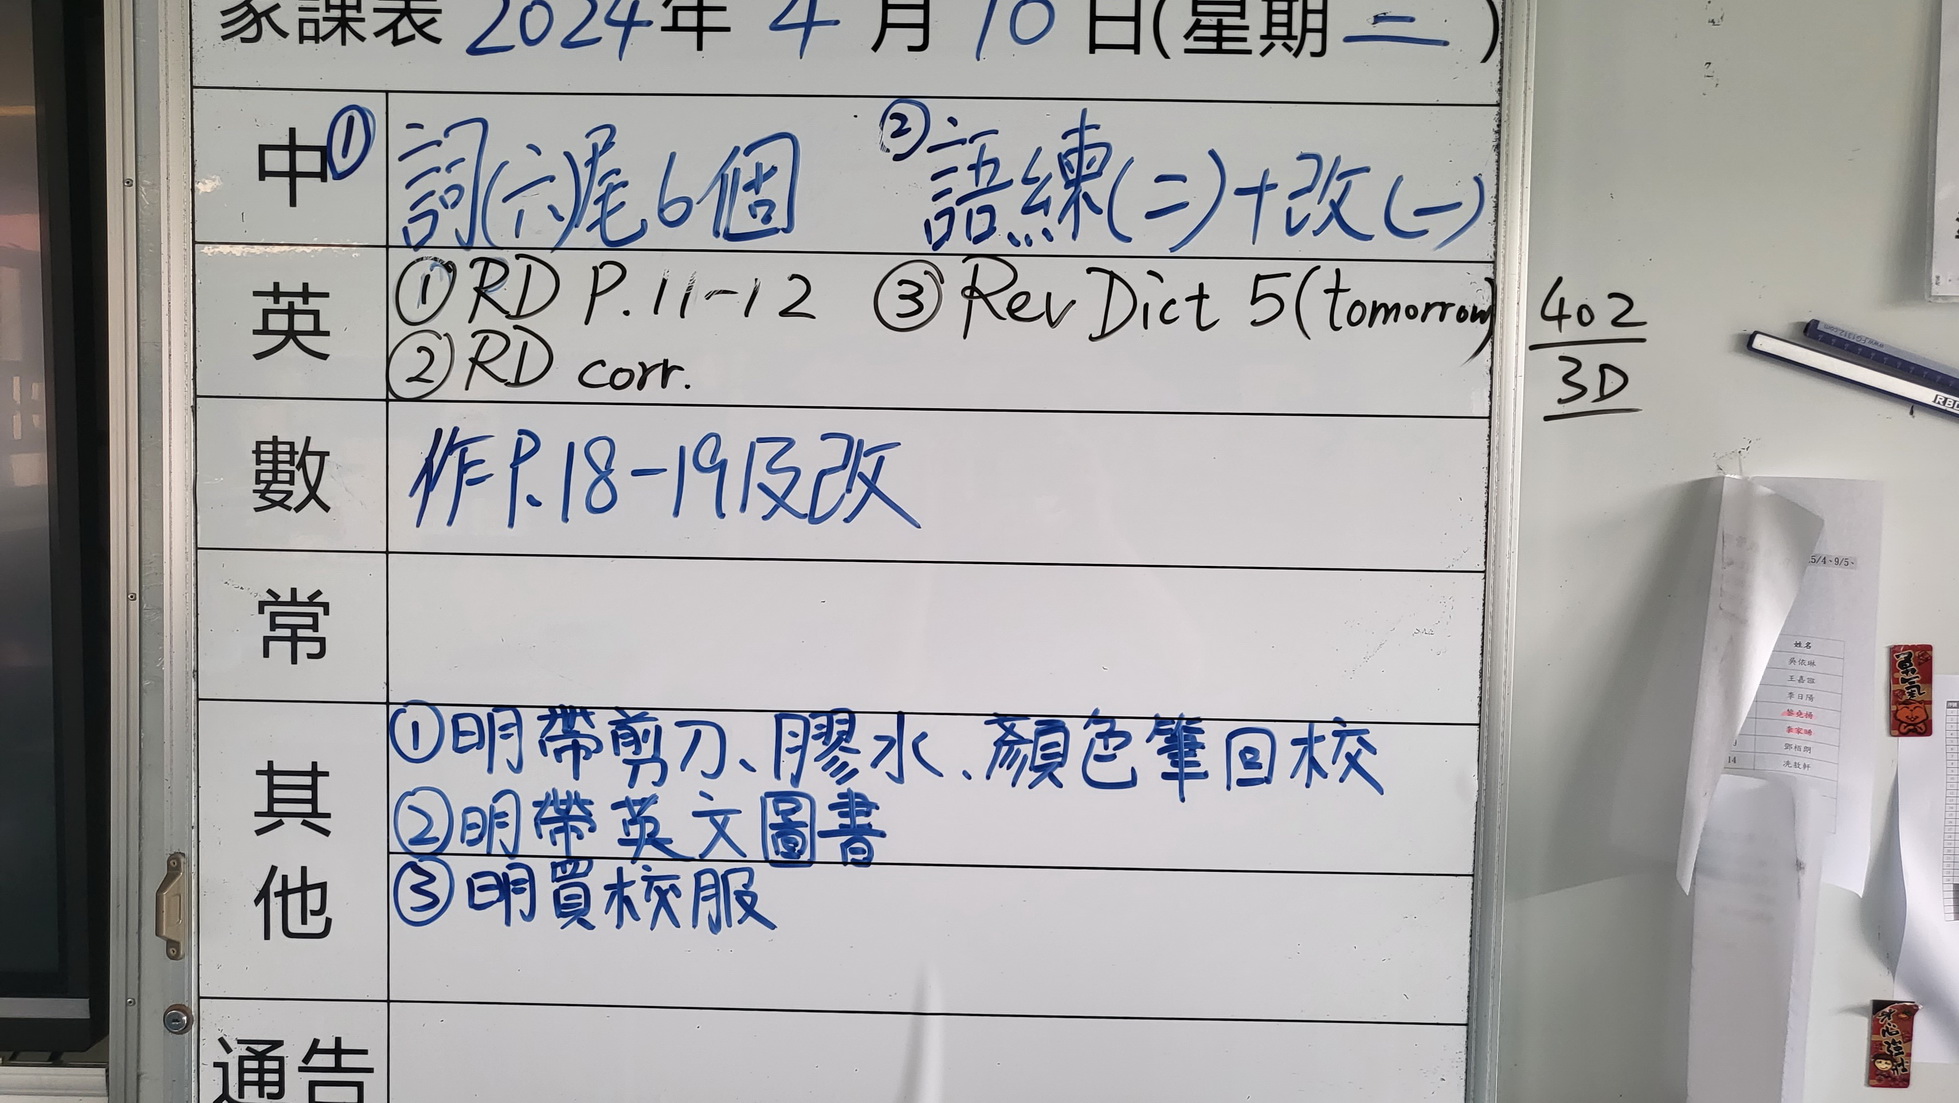 家課表 2024年 4 月 10 日(星期三)
中 ① 詞(六)尾6個 ② 語練(二)+改(一)
英 ① RD P.11-12 ③ Rev Dict 5 (tomorrow)
② RD corr.
402
3D
數 作P.18-19及改
常
其他 ①明帶剪刀、膠水、顏色筆回校
②明帶英文圖書
③明買校服
通告
5/4、9/5、
姓名
14
勇氣